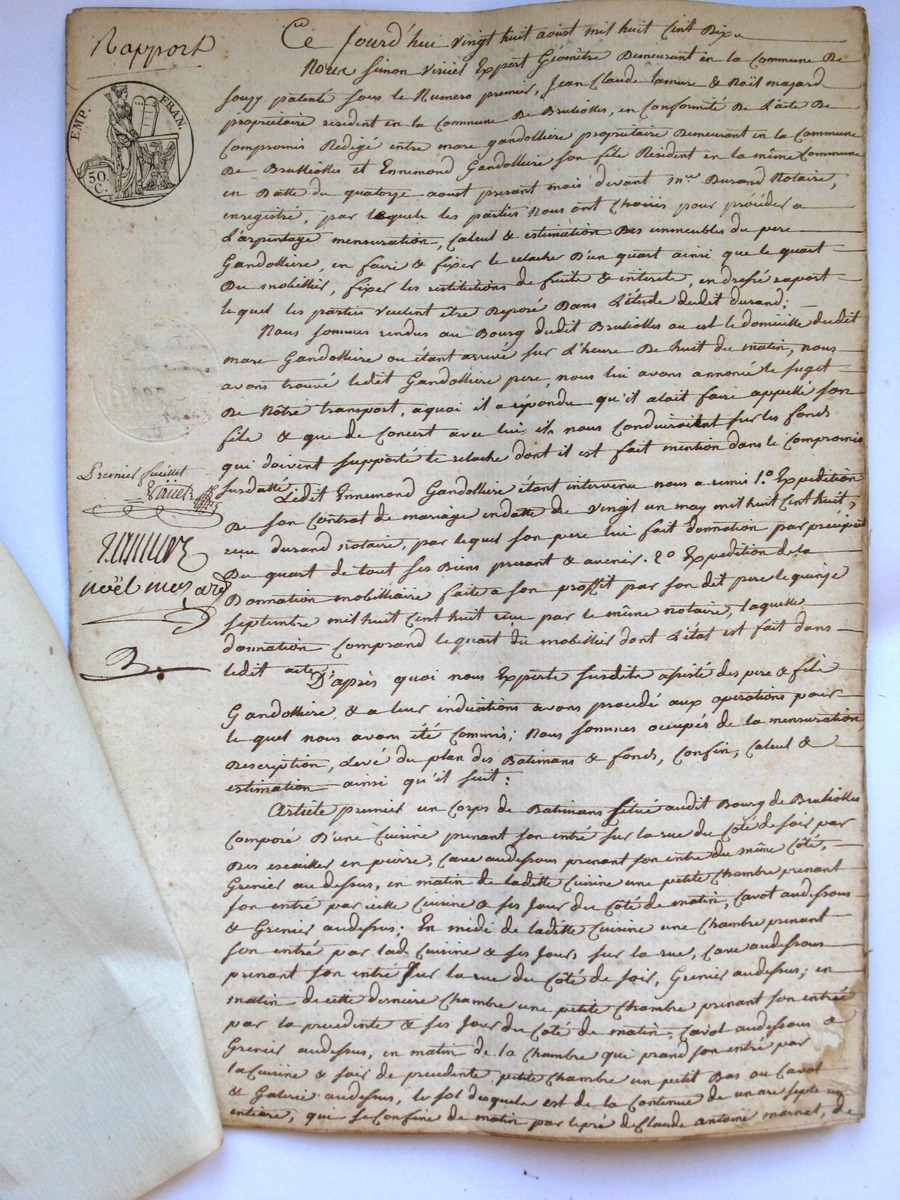 Rapport
EMP. FRAN.
50 C.
Ce Jourd'hui vingt huit aoust mil huit Cent Dix
Nous Simon Viricel Expert Géomètre Demeurant en la Commune De
patenté sous le Numero premier, Jean Claude & Noël mazard
proprietaire resident en la Commune De Brulioles, en Conformité De L'acte De
Compromis Rédigé entre marc gandolliere proprietaire Demeurant en la Commune
De Brullioles et Ennemond Gandolliere son fils Résident en la même Commune
en Datte du quatorze aoust present mois devant Mre Durand Notaire,
enregistré, par lequels les parties Nous ont Choisis pour procéder a
L'arpentage mensuration, Calcul & estimation Des immeubles du pere
Gandolliere, en faire & fixer le relache D'un quart ainsi que le quart
Du mobillier, fixer les restitutions de fruits & interets, en dresse raport
lequel les parties veulent etre Deposé Dans L'étude dudit durand:
Nous sommes rendus au Bourg dudit Brulioles ou est le domicille dudit
marc Gandolliere ou étant arrivé sur L'heure De huit du matin, nous
avons trouvé ledit Gandolliere pere, nous lui avons annoncé le sujet
De Nôtre transport, aquoi il a répondu qu'il alait faire appellé son
fils & que de Concert avec lui ils nous Conduiroient sur les fonds
qui doivent supporté le relache dont il est fait mention dans le Compromis
susdatté.
Ledit Ennemond Gandolliere étant intervenu nous a remis 1.o Expedition
De son Contrat de mariage en datte de vingt un may mil huit Cent huit,
recu durand notaire, par lequel son pere lui fait donnation par précipût
Du quart de tout ses Biens present & avenir. 2o Expedition de la
Donnation mobilliaire faite a son proffit par son dit pere le quinze
septembre mil huit Cent huit recue par le même notaire, laquelle
donnation Comprend le quart du mobillier dont L'état est fait dans
ledit acte;
D'après quoi nous Experts susdits assisté des pere & fils
Gandolliere & a leur indications avons procédé aux operations pour
lequel nous avons été Commis; Nous sommes occupés de la mensuration
Description, Levé du plan des Batimans & fonds, Confin, Calcul &
estimation ainsi qu'il suit:
Article premier un Corps de Batimans situé audit Bourg de Brulioles
Composé D'une Cuisine prenant son entré sur la rue du Côté de soir par
Des escallier en pierre, Cave audessous prenant son entré du même Côté,
Grenier au dessus, en matin de ladite Cuisine une petite Chambre prenant
son entré par cette Cuisine & ses Jours du Côté de matin, Cavot audessous
& Grenier audessus; En midi de ladite Cuisine une Chambre prenant
son entré par lad. Cuisine & ses Jours sur la rue, Cave audessous
prenant son entré sur la rue du Côté de soir, Grenier audessus; en
matin de cette derniere Chambre une petite Chambre prenant son entrée
par la precedente & ses Jour du Côté de matin, Cavot audessous &
Grenier audessus, en matin de la Chambre qui prend son entré par
la Cuisine & soir de precedente petite Chambre un petit Bas ou Cavot
& Galerie audessus, le sol desquels est de la Contenue de un are septe
centiare, qui se Confine de matin par le pré de Claude Antoine mornet, de
Premier feuillet
Viricel
noël mazard